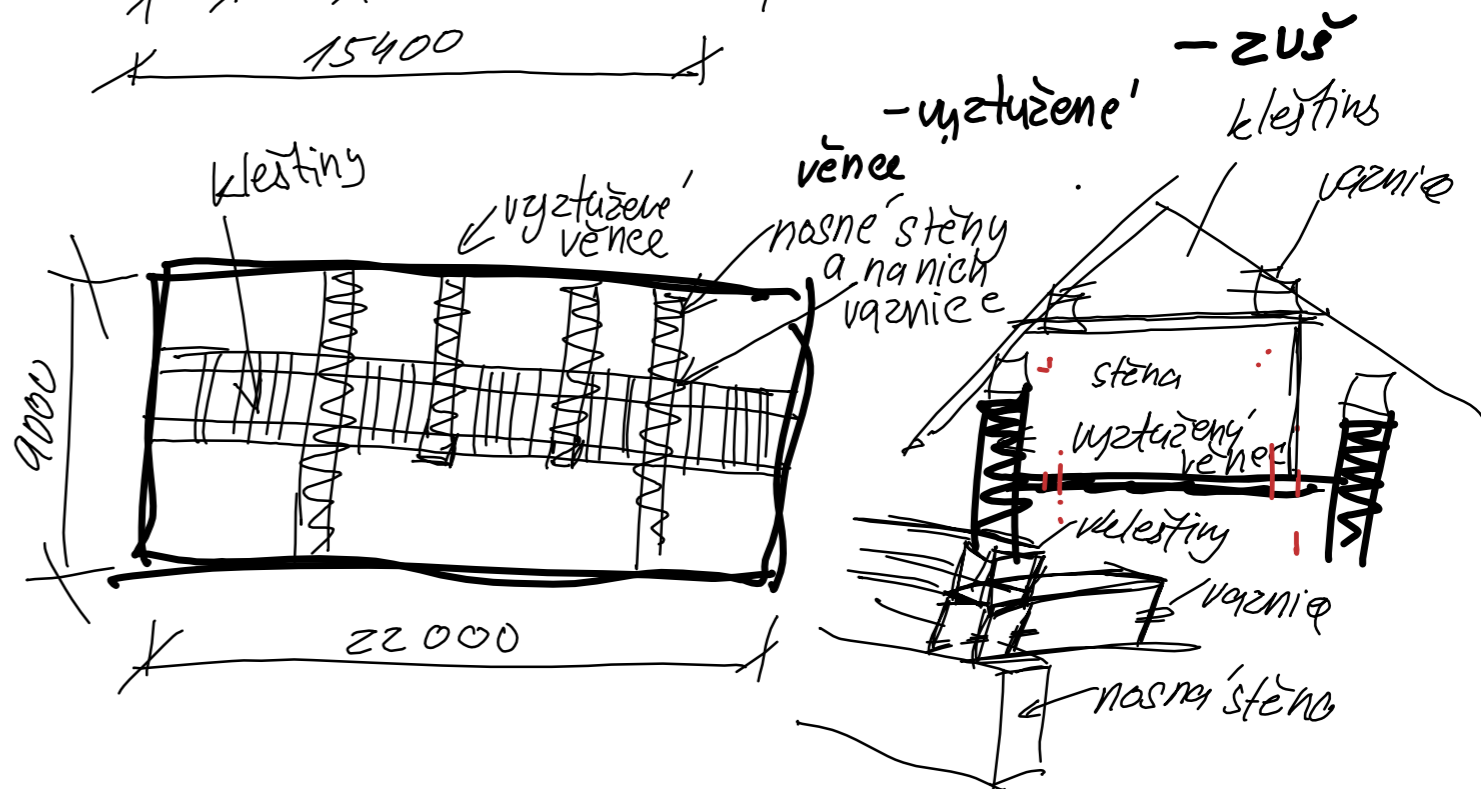 15400
- ZUŠ
- vyztužené
věnce
kleštiny
vaznice
kleštiny
vyztužené
věnce
nosné stěny
a na nich
vaznice
9000
stěna
vyztužený
věnec
kleštiny
vaznice
nosná stěna
22000